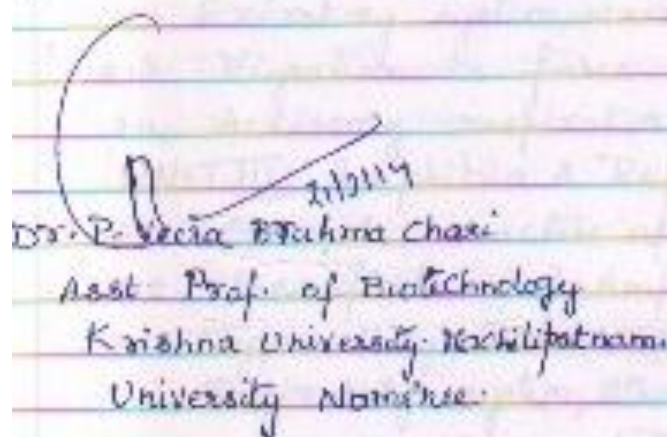 21/2/14
Dr. P. Veera Brahma Chari
Asst. Prof. of Biotechnology
Krishna University. Machilipatnam.
University Nominee.